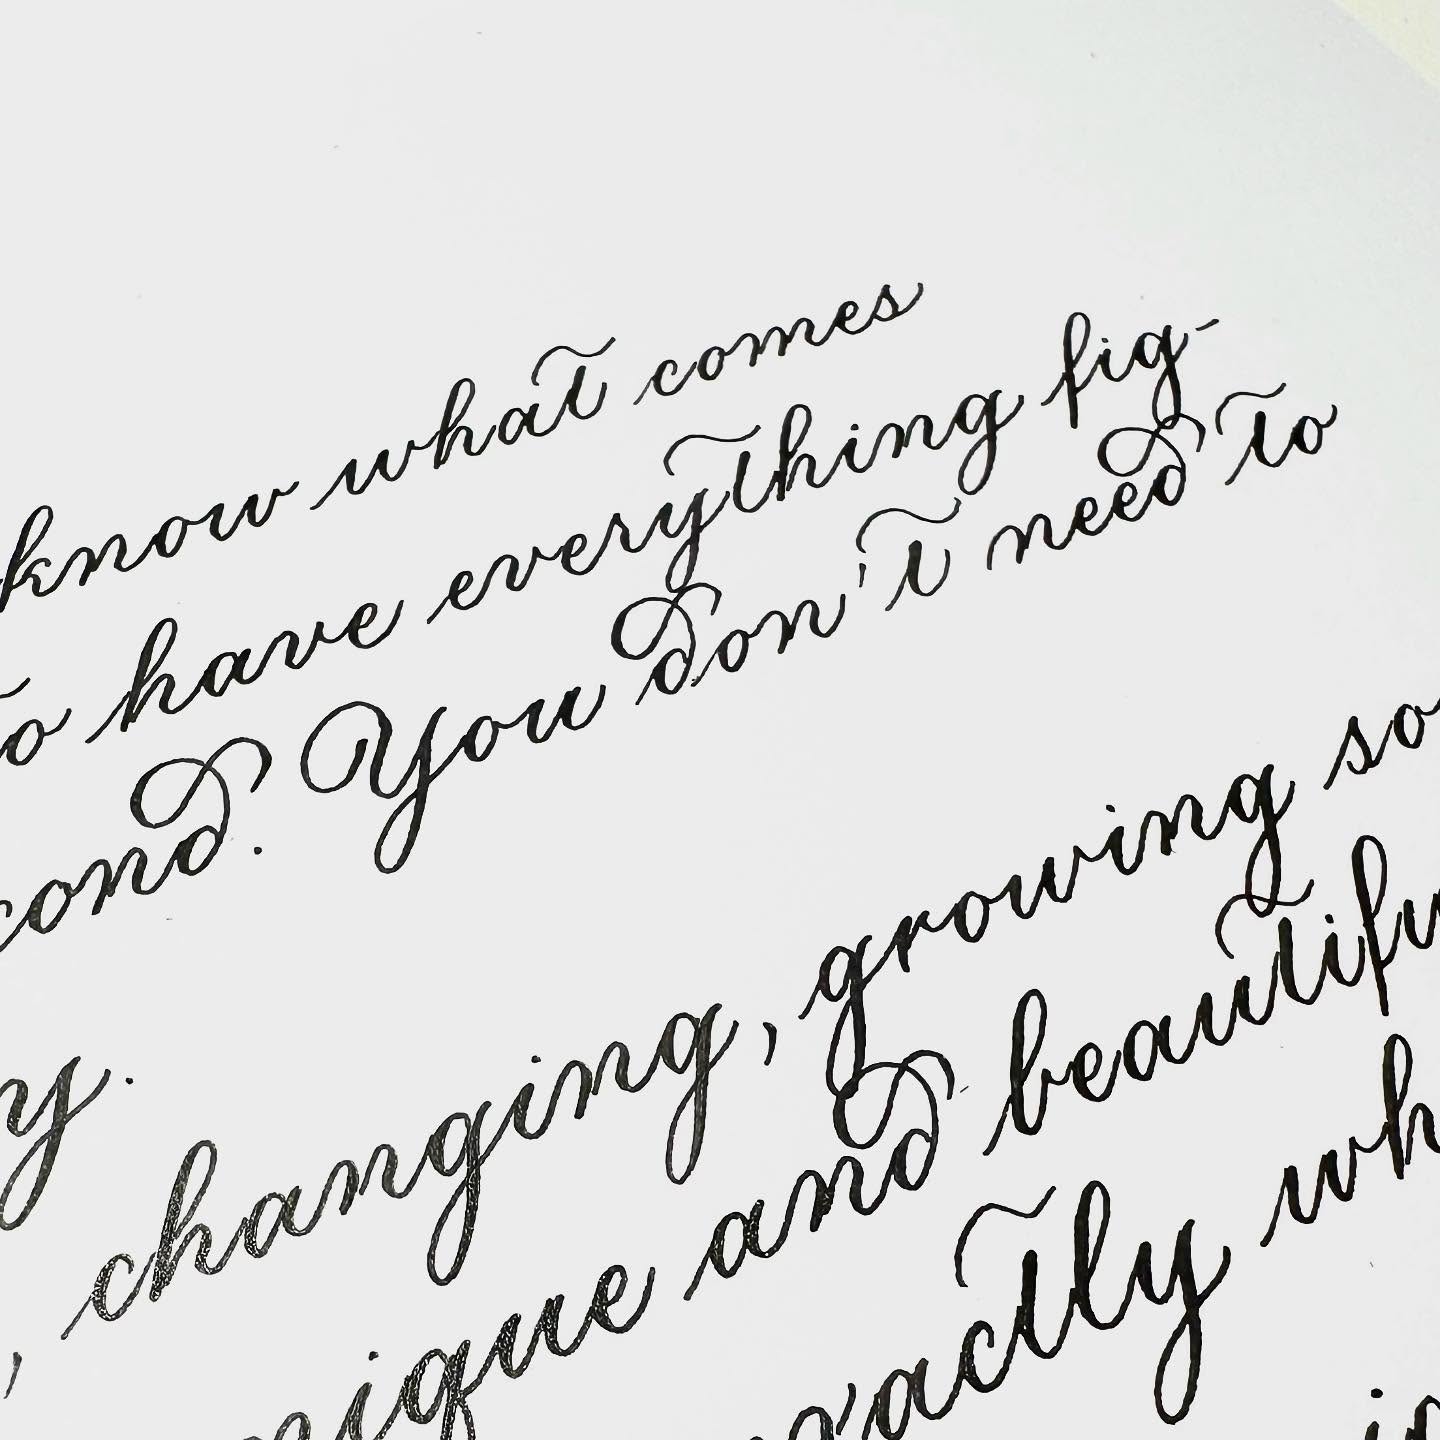 know what comes
to have everything fig-
cond. You don't need to
y.
, changing, growing so
nique and beautifu
xactly wh